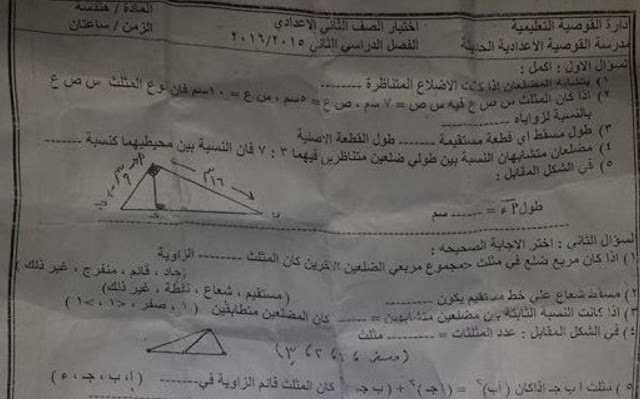 إدارة القوصية التعليمية
اختبار الصف الثاني الاعدادي
المادة / هندسة
مدرسة القوصية الاعدادية الحديثة
الفصل الدراسي الثاني ٢٠١٦/٢٠١٥
الزمن / ساعتان
السؤال الاول : اكمل :
١) يتشابه المضلعان اذا كانت الاضلاع المتناظرة ........
٢) اذا كان المثلث س ص ع فيه س ص = ٧ سم ، ص ع = ٥سم ، س ع = ١٠سم فان نوع المثلث س ص ع
بالنسبة لزواياه ........
٣) طول مسقط أي قطعة مستقيمة ........ طول القطعة الاصلية
٤) مضلعان متشابهان النسبة بين طولي ضلعين متناظرين فيهما ٣ : ٧ فان النسبة بين محيطيهما كنسبة ........
٥) في الشكل المقابل :
١٦سم
طول = ........ سم
السؤال الثانى : اختر الاجابة الصحيحه :
١) اذا كان مربع ضلع في مثلث >مجموع مربعي الضلعين الاخرين كان المثلث ........ الزاوية
(حاد ، قائم ، منفرج ، غير ذلك )
٢) مسقط شعاع على خط مستقيم يكون ........
(مستقيم ، شعاع ، نقطة ، غير ذلك)
٣) اذا كانت النسبة الثابتة بين مضلعين متشابهين = ........ كان المضلعين متطابقين
( ١ ، صفر ، <١ ، >١ )
٤) في الشكل المقابل : عدد المثلثات = ........ مثلث
( صفر ، ١ ، ٢ ، ٣ )
٥) مثلث أ ب جـ اذاكان (أب)٢ = (أجـ)٢ + (ب جـ)٢ كان المثلث قائم الزاوية في ........
( أ ، ب ، جـ ، ء )